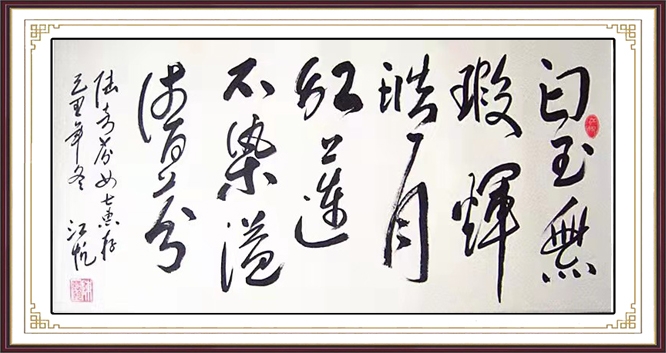 白玉無
瑕輝
皓月
紅蓮
不染溢
清芬
陆奇芬女士惠存
己丑年冬 江帆